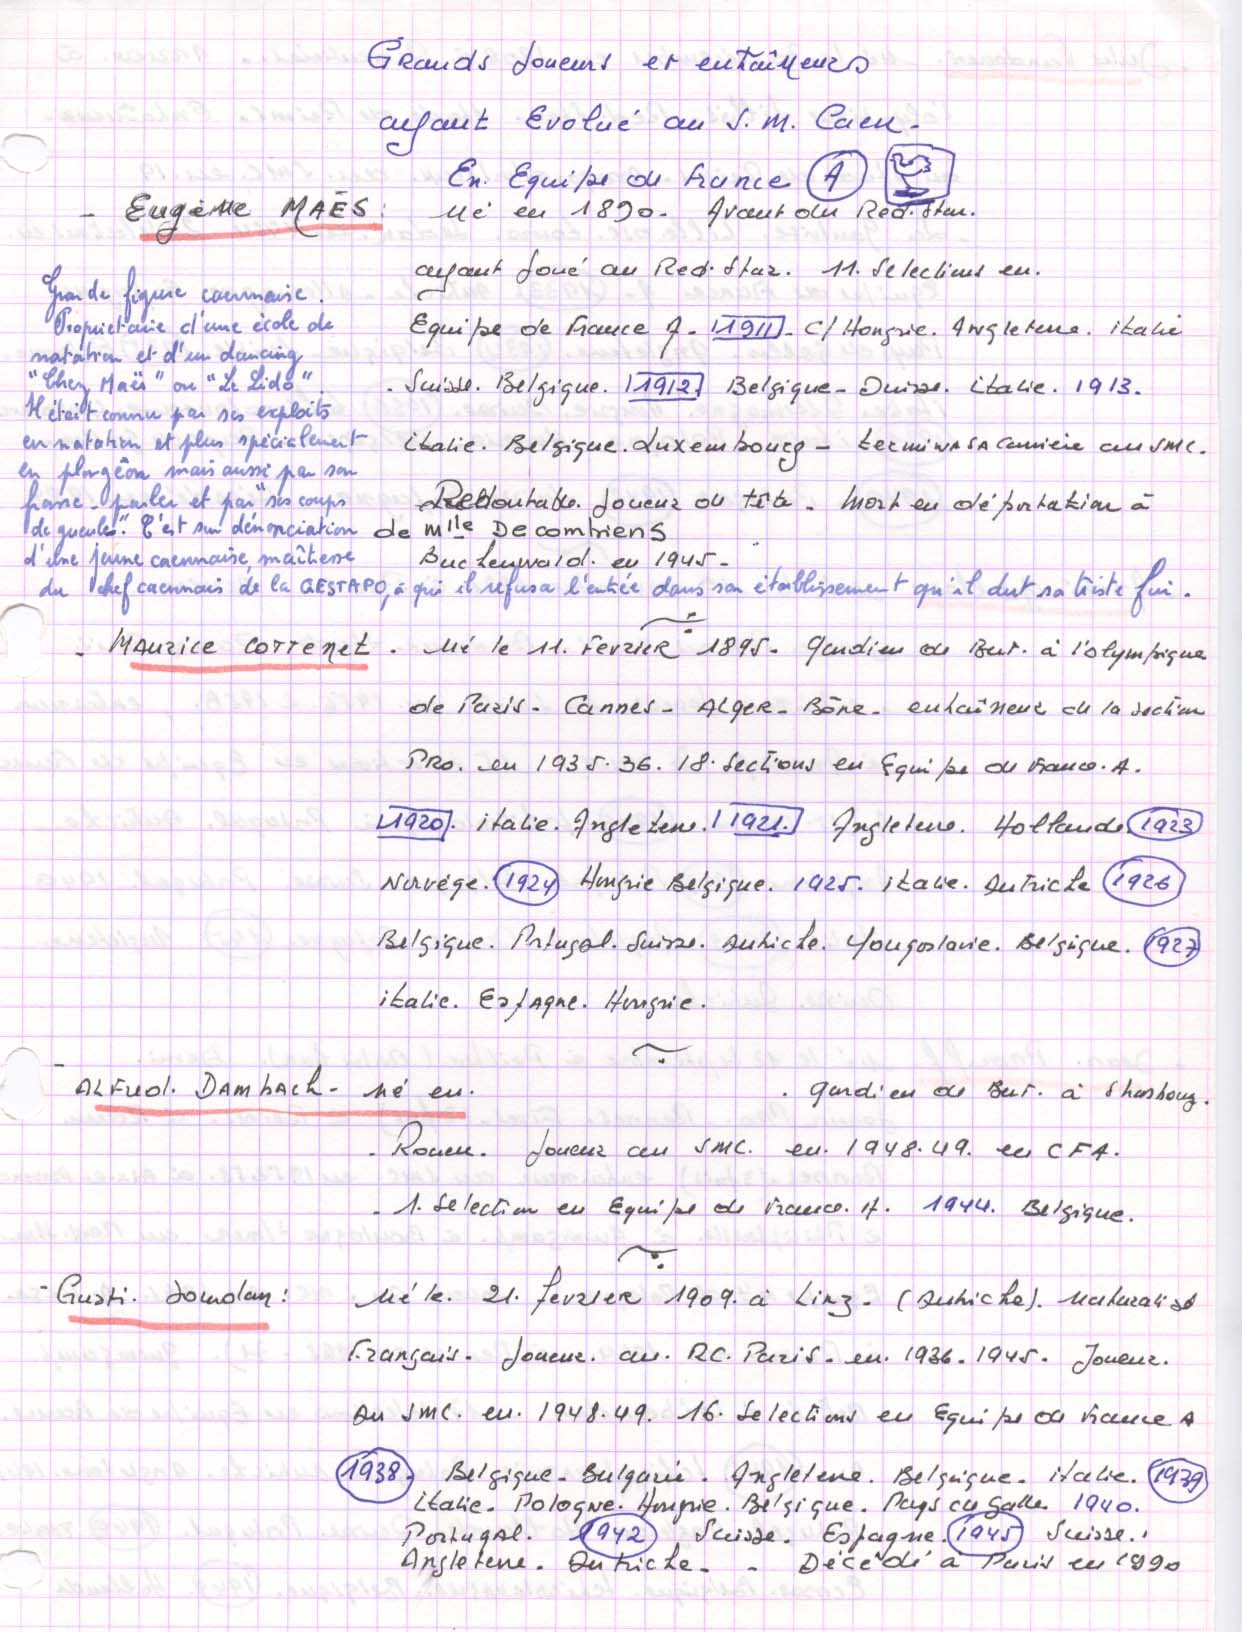 Grands Joueurs et entraîneurs
ayant Evolué au S.M. Caen.
En Equipe de France A
- Eugène MAËS: Né en 1890. Avant du Red. Star.
ayant Joué au Red. Star. 11. Selections en.
Equipe de France A. 1911. C/ Hongrie. Angleterre. italie
. Suisse. Belgique. 1912. Belgique - Suisse. italie. 1913.
italie. Belgique. Luxembourg - termina sa Carrière au SMC.
Redoutable. Joueur de tête. Mort en déportation à
Buchenwald. en 1945 -
Grande figure caennaise.
Propriétaire d'une école de
natation et d'un dancing
"Chez Maës" ou "Le Lido".
Il était connu par ses exploits
en natation et plus spécialement
en plongeon mais aussi par son
franc-parler et par "ses coups
de gueule". C'est sur dénonciation de Mlle Decombiens
d'une jeune caennaise, maîtresse
du chef caennais de la GESTAPO, à qui il refusa l'entrée dans son établissement qu'il dut sa triste fin.
- Maurice COTTENET. Né le 11. Février 1895. Gardien de But. à l'olympique
de Paris - Cannes - Alger - Bône - entraîneur de la section
PRO. en 1935.36. 18. Sections en Equipe de France. A.
1920. italie. Angleterre. 1921. Angleterre. Hollande 1923
Norvége. 1924 Hongrie Belgique. 1925. italie. Autriche 1926
Belgique. Portugal. Suisse. Autriche. Yougoslavie. Belgique. 1927
italie. Espagne. Hongrie.
- ALFred. DAMbACH - né en. . Gardien de But. à Strasbourg.
. Rouen. Joueur au SMC. en. 1948.49. en CFA.
. 1. Selection en Equipe de France. A. 1944. Belgique.
- Gusti. Jourdan: Né le. 21. fevrier 1909. à Linz - (Autriche). Naturalisé
Français. Joueur. au. RC. Paris. en. 1936.1945. Joueur.
au SMC. en. 1948.49. 16. Selections en Equipe de France A
1938. Belgique - Bulgarie. Angleterre. Belgique. italie. 1939
italie. Pologne. Hongrie. Belgique. Pays de Galles 1940.
Portugal. 1942 Suisse. Espagne. 1945 Suisse.
Angleterre. Autriche. - Décédé à Paris en 1990